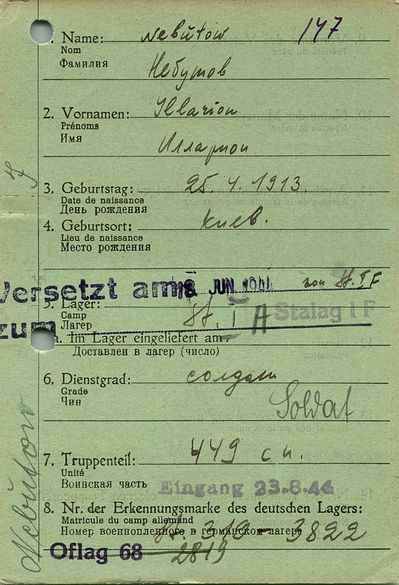 1. Name: Nebutow 147
Nom
Фамилия Небутов
2. Vornamen: Illarion
Prénoms
Имя Илларион
3. Geburtstag: 25.4.1913.
Date de naissance
День рождения
4. Geburtsort: Киев.
Lieu de naissance
Место рождения
Versetzt am 18 JUN von St. I F
5. Lager: St. I A Stalag I F
zum
Camp
Лагерь
Im Lager eingeliefert am
Доставлен в лагерь (число)
6. Dienstgrad: солдат
Grade
Чин Soldat
7. Truppenteil: 449 сп.
Unité
Воинская часть Eingang 23.8.44
8. Nr. der Erkennungsmarke des deutschen Lagers:
Matricule du camp allemand
Номер военнопленного в германском лагере 319 - 3822
Oflag 68 2819
Nebutow